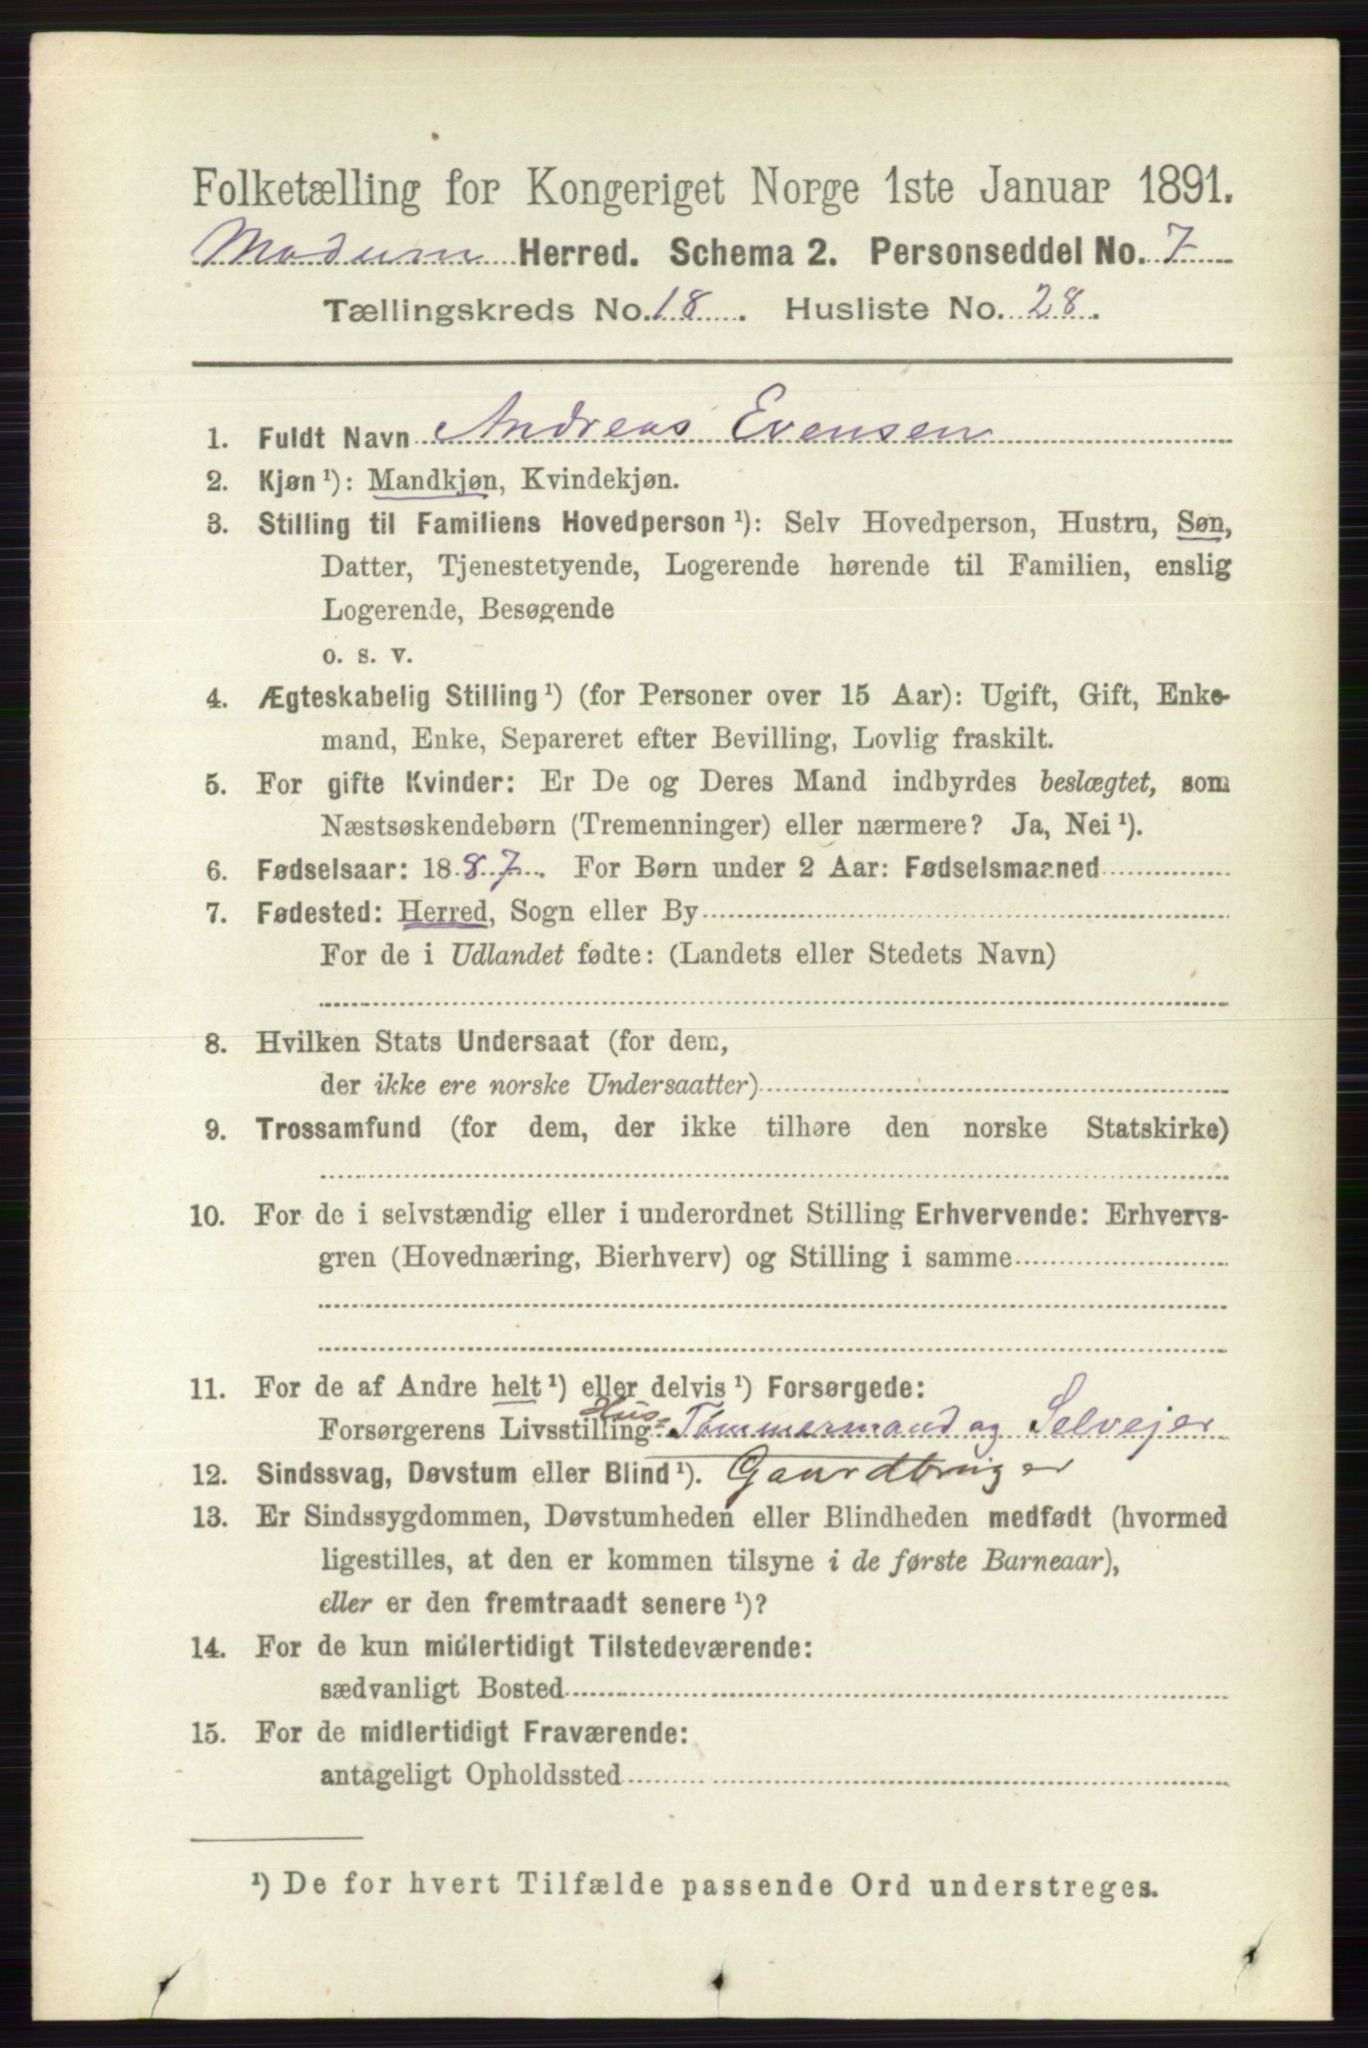 Folketælling for Kongeriget Norge 1ste Januar 1891.
Modum Herred. Schema 2. Personseddel No. 7
Tællingskreds No. 18. Husliste No. 28.
1. Fuldt Navn Andreas Evensen
2. Kjøn¹): Mandkjøn, Kvindekjøn.
3. Stilling til Familiens Hovedperson¹): Selv Hovedperson, Hustru, Søn,
Datter, Tjenestetyende, Logerende hørende til Familien, enslig
Logerende, Besøgende
o. s. v.
4. Ægteskabelig Stilling¹) (for Personer over 15 Aar): Ugift, Gift, Enke-
mand, Enke, Separeret efter Bevilling, Lovlig fraskilt.
5. For gifte Kvinder: Er De og Deres Mand indbyrdes beslægtet, som
Næstsøskendebørn (Tremenninger) eller nærmere? Ja, Nei¹).
6. Fødselsaar: 1887. For Børn under 2 Aar: Fødselsmaaned
7. Fødested: Herred, Sogn eller By
For de i Udlandet fødte: (Landets eller Stedets Navn)
8. Hvilken Stats Undersaat (for dem,
der ikke ere norske Undersaatter)
9. Trossamfund (for dem, der ikke tilhøre den norske Statskirke)
10. For de i selvstændig eller i underordnet Stilling Erhvervende: Erhvervs-
gren (Hovednæring, Bierhverv) og Stilling i samme
11. For de af Andre helt¹) eller delvis¹) Forsørgede:
Forsørgerens Livsstilling Hus-Tømmermand og Selvejer
12. Sindssvag, Døvstum eller Blind¹). Gaardbruger
13. Er Sindssygdommen, Døvstumheden eller Blindheden medfødt (hvormed
ligestilles, at den er kommen tilsyne i de første Barneaar),
eller er den fremtraadt senere¹)?
14. For de kun midlertidigt Tilstedeværende:
sædvanligt Bosted
15. For de midlertidigt Fraværende:
antageligt Opholdssted
¹) De for hvert Tilfælde passende Ord understreges.